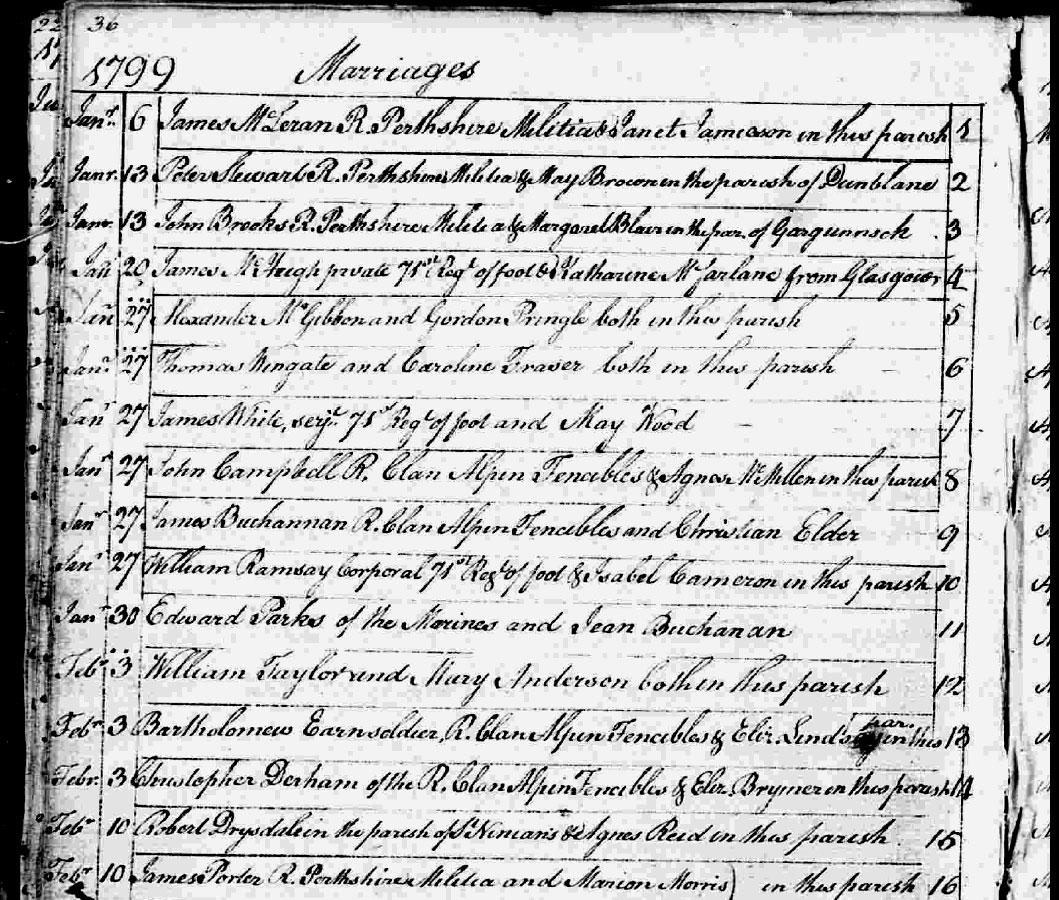 36
1799 Marriages
Janr. 6 James McLeran R. Perthshire Militia & Janet Jamieson in this parish 1
Janr. 13 Peter Stewart R. Perthshire Militia & May Brown in the parish of Dunblane 2
Janr. 13 John Brooks R. Perthshire Militia & Margaret Blair in the par. of Gargunnock 3
Janr 20 James McHugh private 71st Regt of foot & Katharine McFarlane from Glasgow 4
Janr 27 Alexander McGibbon and Gordon Pringle both in this parish 5
Janr 27 Thomas Wingate and Caroline Fraser both in this parish 6
Janr 27 James White, serjt. 71st Regt of foot and May Wood 7
Janr 27 John Campbell R. Clan Alpin Fencibles & Agnes McMillen in this parish 8
Janr 27 James Buchannan R. Clan Alpin Fencibles and Christian Elder 9
Janr 27 William Ramsay Corporal 71st Regt of foot & Isabel Cameron in this parish 10
Janr 30 Edward Parks of the Marines and Jean Buchanan 11
Febr 3 William Taylor and Mary Anderson both in this parish 12
Febr 3 Bartholomew Earn soldier, R. Clan Alpin Fencibles & Eliz. in this par. 13
Febr. 3 Christopher Derham of the R. Clan Alpin Fencibles & Eliz. Brymer in this parish 14
Febr 10 Robert Drysdale in the parish of St Ninians & Agnes Reid in this parish 15
Febr 10 James Porter R. Perthshire Militia and Marion Morris) in this parish 16